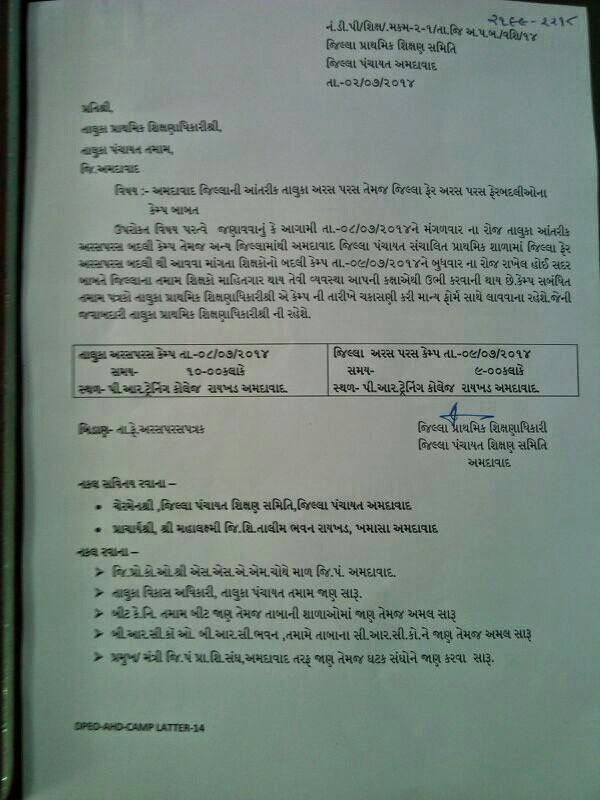 ૨૧૯૯-૨૨૧૮
નં.ડી.પી/શિક્ષ/.મકમ-૨-૧/તા.જિ અ.પ.બ./વશિ/૧૪
જિલ્લા પ્રાથમિક શિક્ષણ સમિતિ
જિલ્લા પંચાયત અમદાવાદ
તા.-૦૨/૦૭/૨૦૧૪
પ્રતિશ્રી,
તાલુકા પ્રાથમિક શિક્ષણાધિકારીશ્રી,
તાલુકા પંચાયત તમામ,
જિ.અમદાવાદ
વિષય :- અમદાવાદ જિલ્લાની આંતરીક તાલુકા અરસ પરસ તેમજ જિલ્લા ફેર અરસ પરસ ફેરબદલીઓના
કેમ્પ બાબત
ઉપરોક્ત વિષય પરત્વે જણાવવાનું કે આગામી તા.-૦૮/૦૭/૨૦૧૪ને મંગળવાર ના રોજ તાલુકા આંતરીક
અરસપરસ બદલી કેમ્પ તેમજ અન્ય જિલ્લામાંથી અમદાવાદ જિલ્લા પંચાયત સંચાલિત પ્રાથમિક શાળામાં જિલ્લા ફેર
અરસપરસ બદલી થી આવવા માંગતા શિક્ષકોનો બદલી કેમ્પ તા.-૦૯/૦૭/૨૦૧૪ને બુધવાર ના રોજ રાખેલ હોઈ સદર
બાબતે જિલ્લાના તમામ શિક્ષકો માહિતગાર થાય તેવી વ્યવસ્થા આપની કક્ષાએથી ઉભી કરવાની થાય છે.કેમ્પ સબંધિત
તમામ પત્રકો તાલુકા પ્રાથમિક શિક્ષણાધિકારીશ્રી એ કેમ્પ ની તારીખે ચકાસણી કરી માન્ય ફોર્મ સાથે લાવવાના રહેશે.જેની
જવાબદારી તાલુકા પ્રાથમિક શિક્ષણાધિકારીશ્રી ની રહેશે.
તાલુકા અરસપરસ કેમ્પ તા.-૦૮/૦૭/૨૦૧૪
સમય- ૧૦-૦૦કલાકે
સ્થળ- પી.આર.ટ્રેનિંગ કોલેજ રાયખડ અમદાવાદ.
જિલ્લા અરસ પરસ કેમ્પ તા.-૦૯/૦૭/૨૦૧૪
સમય- ૯-૦૦કલાકે
સ્થળ- પી.આર.ટ્રેનિંગ કોલેજ રાયખડ અમદાવાદ.
બિડાણ- તા.ફે.અરસપરસપત્રક
જિલ્લા પ્રાથમિક શિક્ષણાધિકારી
જિલ્લા પંચાયત શિક્ષણ સમિતિ
અમદાવાદ
નકલ સવિનય રવાના –
ચેરમેનશ્રી ,જિલ્લા પંચાયત શિક્ષણ સમિતિ,જિલ્લા પંચાયત અમદાવાદ
પ્રાચાર્યશ્રી, શ્રી મહાલક્ષ્મી જિ.શિ.તાલીમ ભવન રાયખડ, ખમાસા અમદાવાદ
નકલ રવાના –
જિ.પ્રો.કો.ઓ.શ્રી એસ.એસ.એ.એમ.ચોથે માળ જિ.પં. અમદાવાદ.
તાલુકા વિકાસ અધિકારી, તાલુકા પંચાયત તમામ જાણ સારૂ.
બીટ કે.નિ. તમામ બીટ જાણ તેમજ તાબાની શાળાઓમાં જાણ તેમજ અમલ સારૂ
બી.આર.સી.કો ઓ. બી.આર.સી.ભવન ,તમામે તાબાના સી.આર.સી.કો.ને જાણ તેમજ અમલ સારૂ
પ્રમુખ/ મંત્રી જિ.પં પ્રા.શિ.સંઘ,અમદાવાદ તરફ જાણ તેમજ ઘટક સંઘોને જાણ કરવા સારૂ.
DPEO-AHD-CAMP LATTER-14